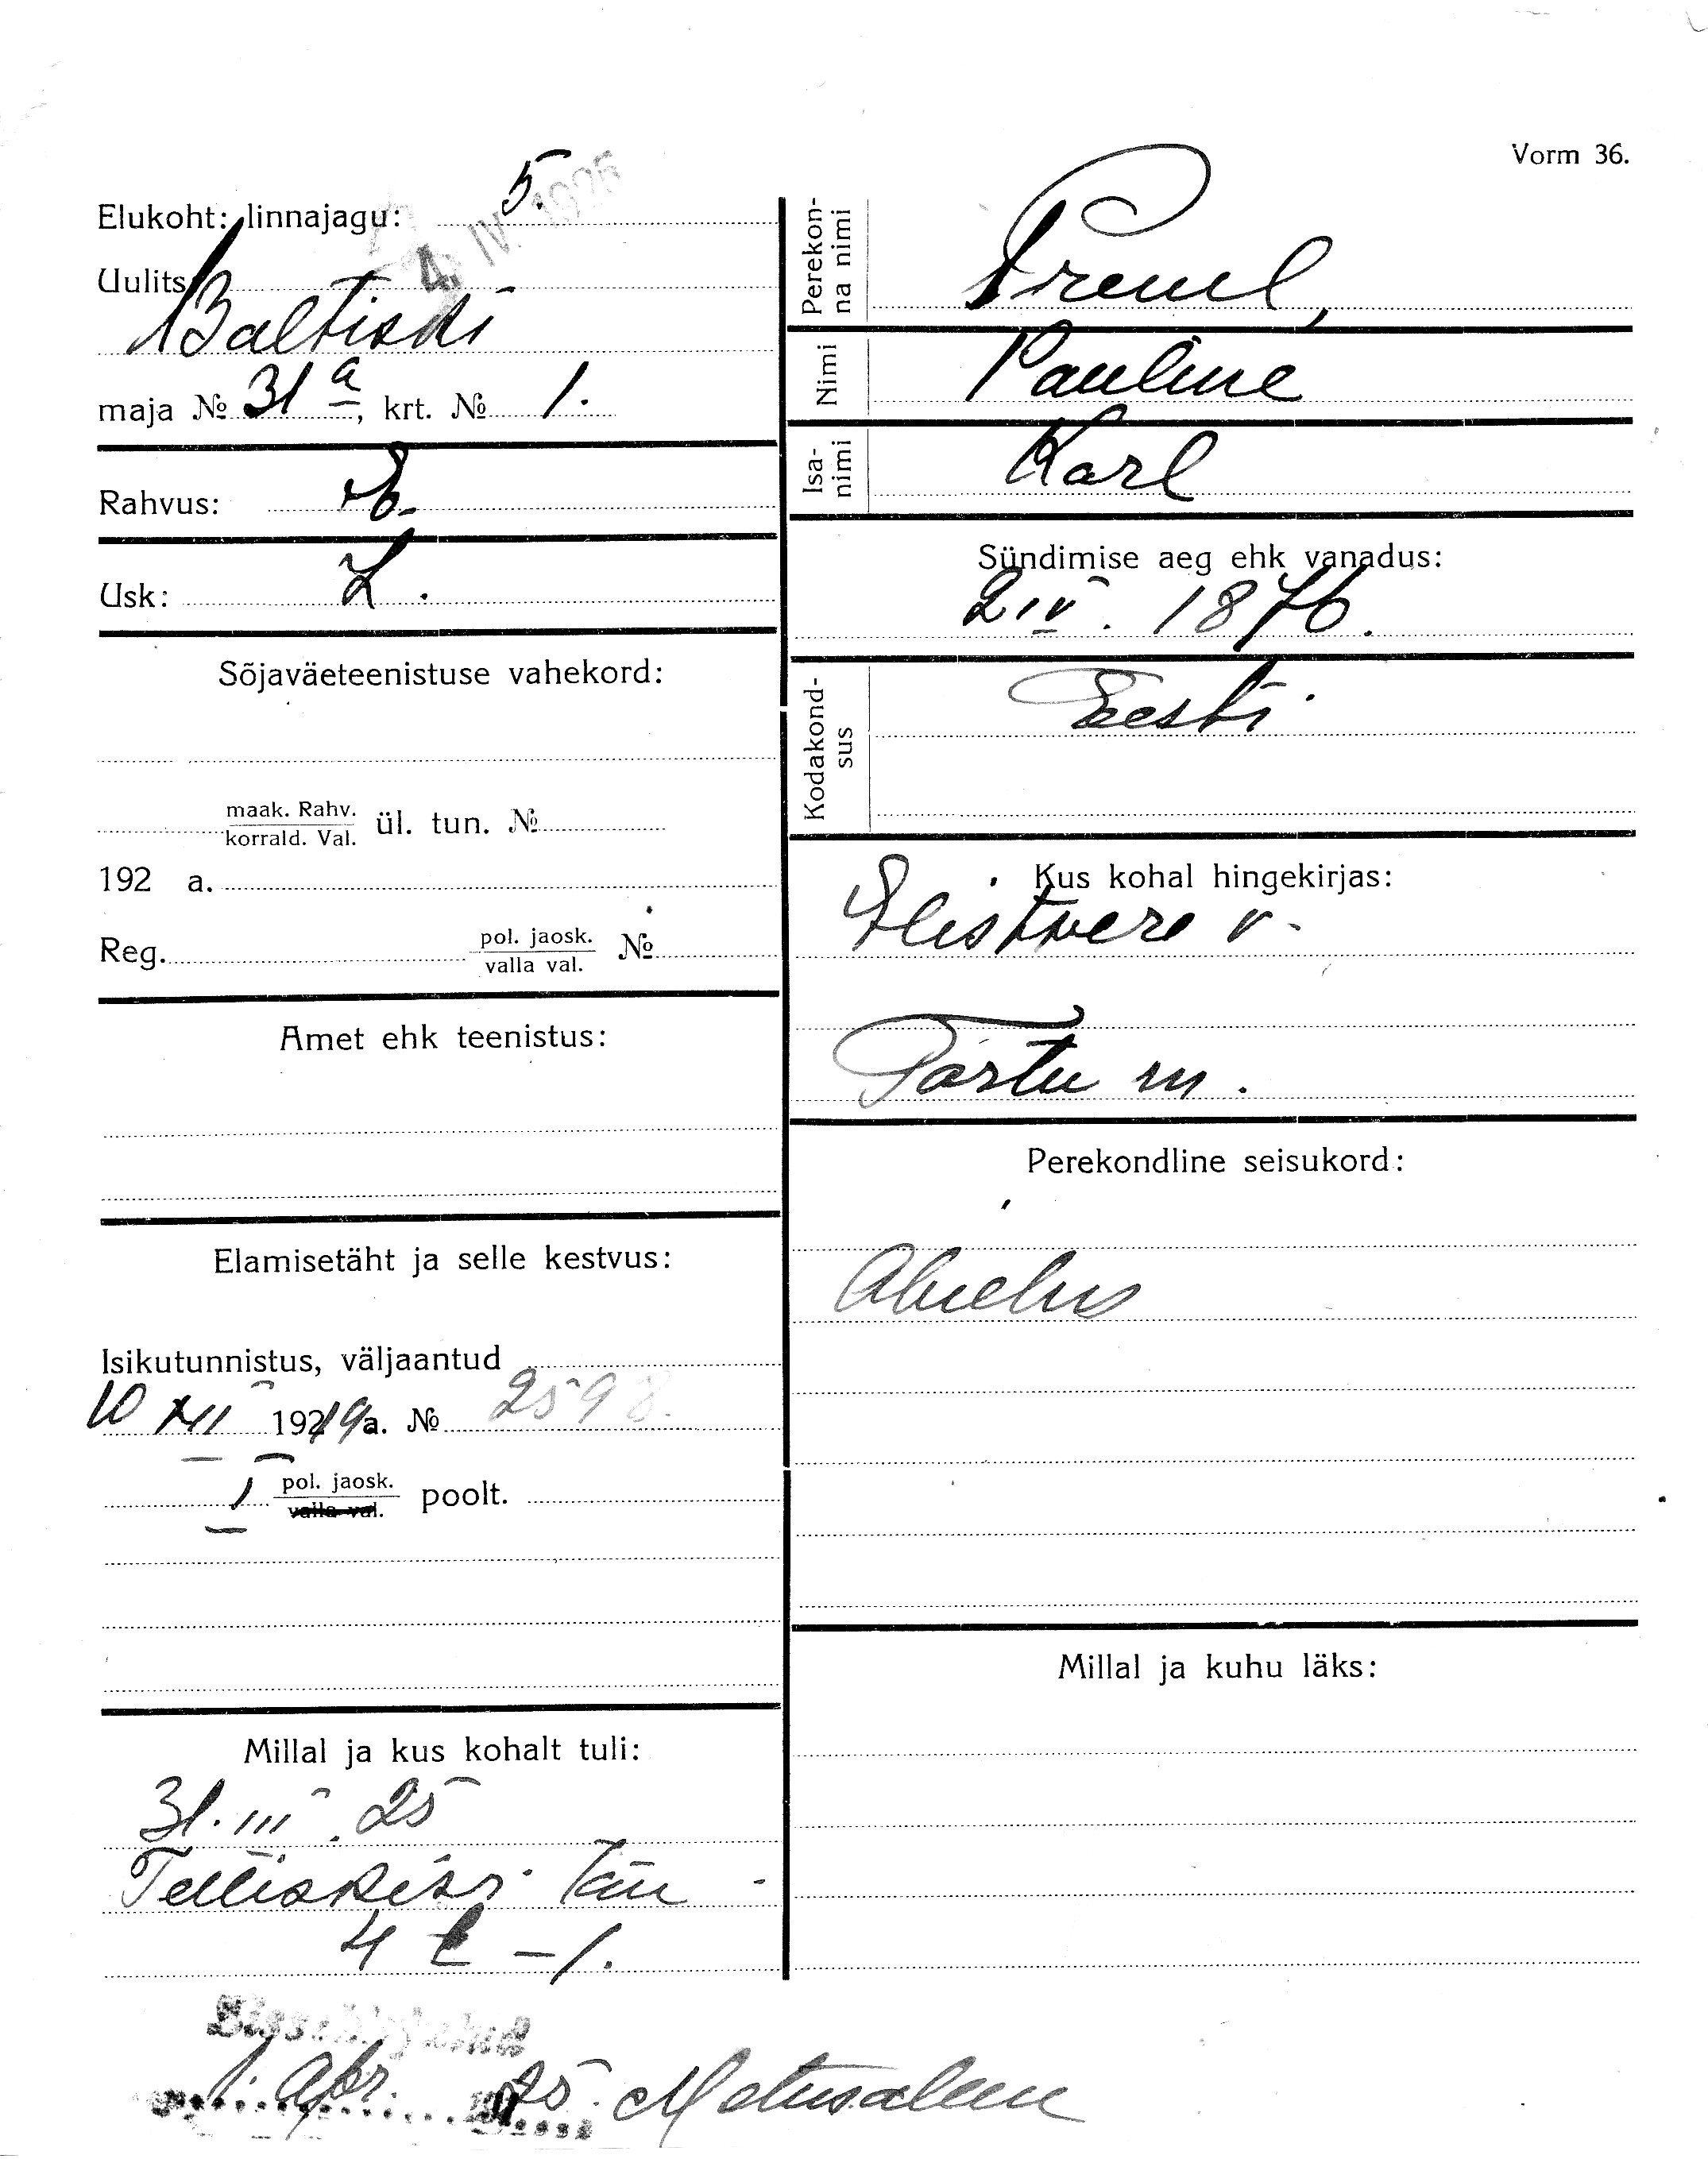 Vorm 36.
Elukoht: linnajagu: 5.
4. IV. 1925
Uulits
Baltiski
maja № 31 a, krt. № 1.
Rahvus: E.
Usk: L.
Sõjaväeteenistuse vahekord:
maak. Rahv.
korrald. Val. ül. tun. №
192 a.
Reg. pol. jaosk. №
valla val.
Amet ehk teenistus:
Elamisetäht ja selle kestvus:
Isikutunnistus, väljaantud
10 XII 1919 a. № 2598.
I pol. jaosk. poolt.
valla val.
Millal ja kus kohalt tuli:
31. III. 25
Telliskivi tän
4 c - 1.
Sissekirjutud
1. Apr. 25. Metusalem
Perekon-
na nimi
Nimi Pauline
Isa-
nimi Karl
Sündimise aeg ehk vanadus:
2 IV. 1876.
Kodakond-
sus Eesti
Kus kohal hingekirjas:
Elistvere v.
Tartu m.
Perekondline seisukord:
Abielus
Millal ja kuhu läks: